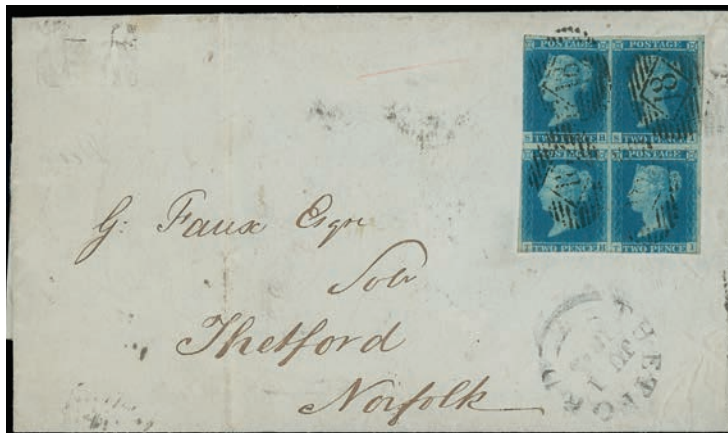 POSTAGE POSTAGE
TWO PENCE TWO PENCE
POSTAGE POSTAGE
TWO PENCE TWO PENCE
18
G: Faux Esqre
Solr
Thetford
Norfolk
THETFORD
JU 1